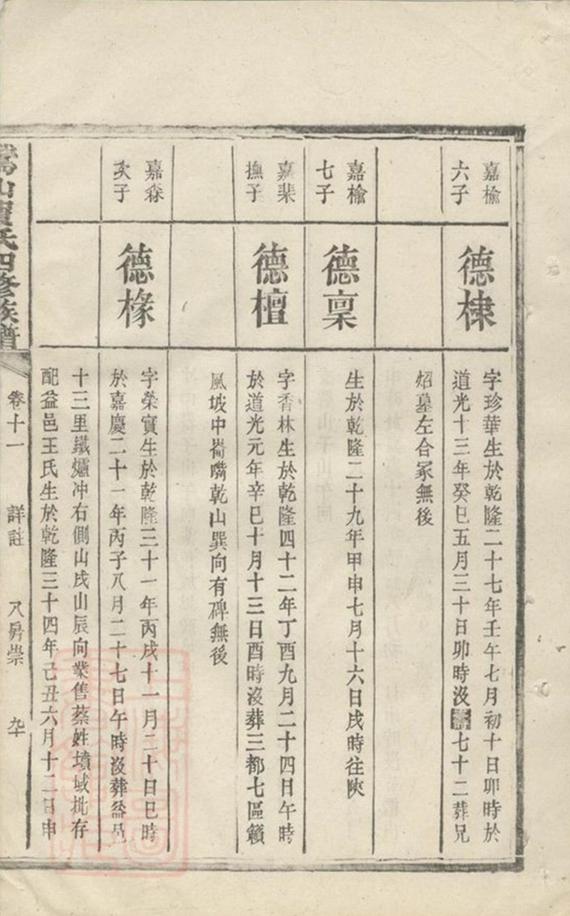 嘉榆
六子
德棣
字珍華生於乾隆二十七年壬午七月初十日卯時於
道光十三年癸巳五月三十日卯時沒壽七十二葬兄
炤墓左合冢無後
嘉榆
七子
德稟
生於乾隆二十九年甲申七月十六日戌時往陝
嘉棐
撫子
德檀
字香林生於乾隆四十二年丁酉九月二十四日午時
於道光元年辛巳十月十三日酉時沒葬三都七區籟
風坡中崙嘴乾山巽向有碑無後
嘉森
次子
德椽
字榮實生於乾隆三十一年丙戌十一月二十日巳時
於嘉慶二十一年丙子八月二十七日午時沒葬益邑
十三里鐵爐冲右側山戌山辰向業售蔡姓墳域批存
配益邑王氏生於乾隆三十四年己丑六月十二日申
山賀氏四修族譜
卷十一
詳註
房崇
九十